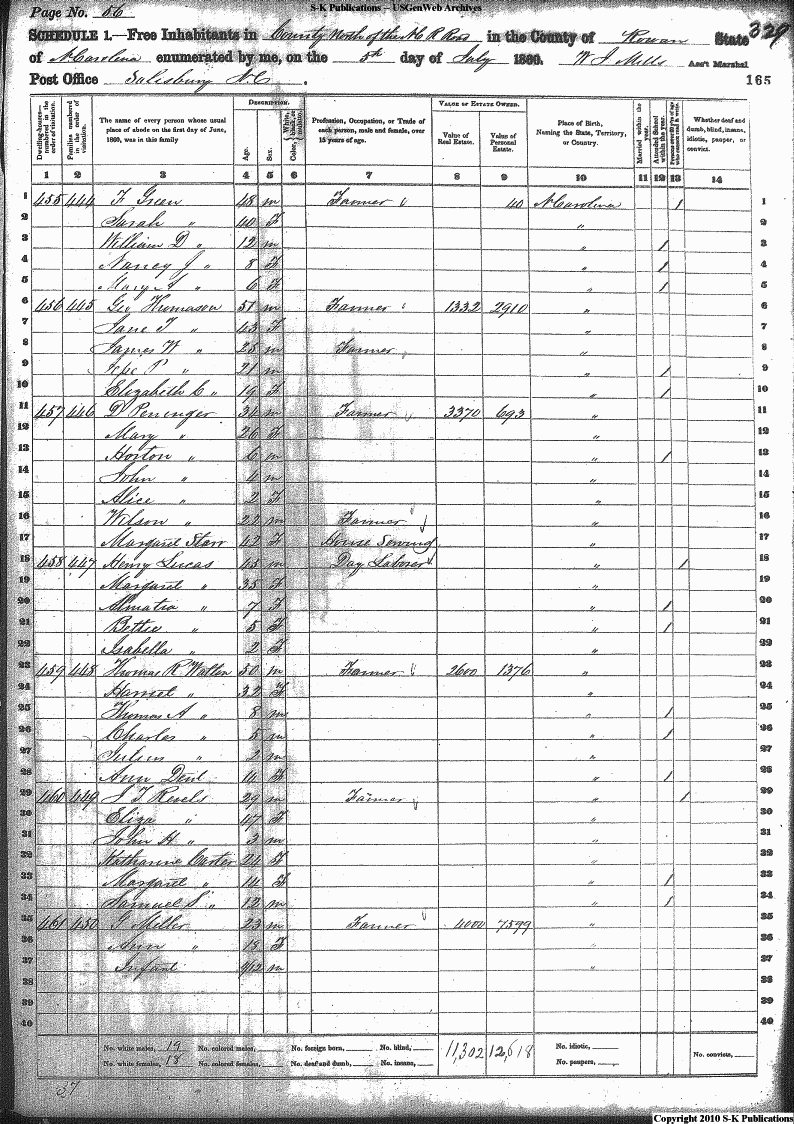 S-K Publications – USGenWeb Archives
Page No. 56
SCHEDULE 1.—Free Inhabitants in County North of the N C R Road in the County of Rowan State 329
of N. Carolina enumerated by me, on the 5th day of July 1860. W J Mills Ass't Marshal
Post Office Salisbury N.C. 165
Dwelling-houses—numbered in the order of visitation.
Families numbered in the order of visitation.
The name of every person whose usual place of abode on the first day of June, 1860, was in this family
DESCRIPTION.
Age.
Sex.
Color, White, black, or mulatto.
Profession, Occupation, or Trade of each person, male and female, over 15 years of age.
VALUE OF ESTATE OWNED.
Value of Real Estate.
Value of Personal Estate.
Place of Birth, Naming the State, Territory, or Country.
Married within the year.
Attended School within the year.
Whether deaf and dumb, blind, insane, idiotic, pauper, or convict.
1 2 3 4 5 6 7 8 9 10 11 12 13 14
1 455 444 F Green 48 m Farmer 40 N Carolina / 1
2 Sarah " 40 F " 2
3 William D " 12 m / 3
4 Nancy J " 8 F " / 4
5 Mary A " 6 F " / 5
6 456 445 Geo Thomason 51 m Farmer 1332 2910 " 6
7 Jane T " 43 F " 7
8 James W " 25 m Farmer " 8
9 Jesse P " 21 m " / 9
10 Elizabeth C " 19 F " / 10
11 457 446 D Peninger 34 m Farmer 3370 693 " 11
12 Mary " 26 F " 12
13 Horton " 6 m " / 13
14 John " 4 m " 14
15 Alice " 2 F " 15
16 Wilson " 22 m Farmer " 16
17 Margaret Starr 42 F House Sewing " 17
18 458 447 Henry Lucas 45 m Day Laborer " / 18
19 Margaret " 35 F " 19
20 Almatia " 7 F " / 20
21 Bettie " 5 F " / 21
22 Isabella " 2 F " 22
23 459 448 Thomas R Watten 50 m Farmer 2600 1376 " 23
24 Harriet " 32 F " 24
25 Thomas A " 8 m " / 25
26 Charles " 5 m " / 26
27 Julius " 2 m " 27
28 Ann Dent 14 F " / 28
29 460 449 J T Revels 29 m Farmer " / 29
30 Eliza " 47 F " 30
31 John H " 3 m " 31
32 Katharine Carter 24 F " 32
33 Margaret " 14 F " / 33
34 Samuel S " 12 m " / 34
35 461 450 G Miller 23 m Farmer 4000 7599 " 35
36 Ann " 18 F " 36
37 Infant 9/12 m " 37
38 38
39 39
40 40
No. white males, 19 No. colored males, No. foreign born, No. blind, 11,302 12,618 No. idiotic,
No. white females, 18 No. colored females, No. deaf and dumb, No. insane, No. paupers, No. convicts,
37
Copyright 2010 S-K Publications